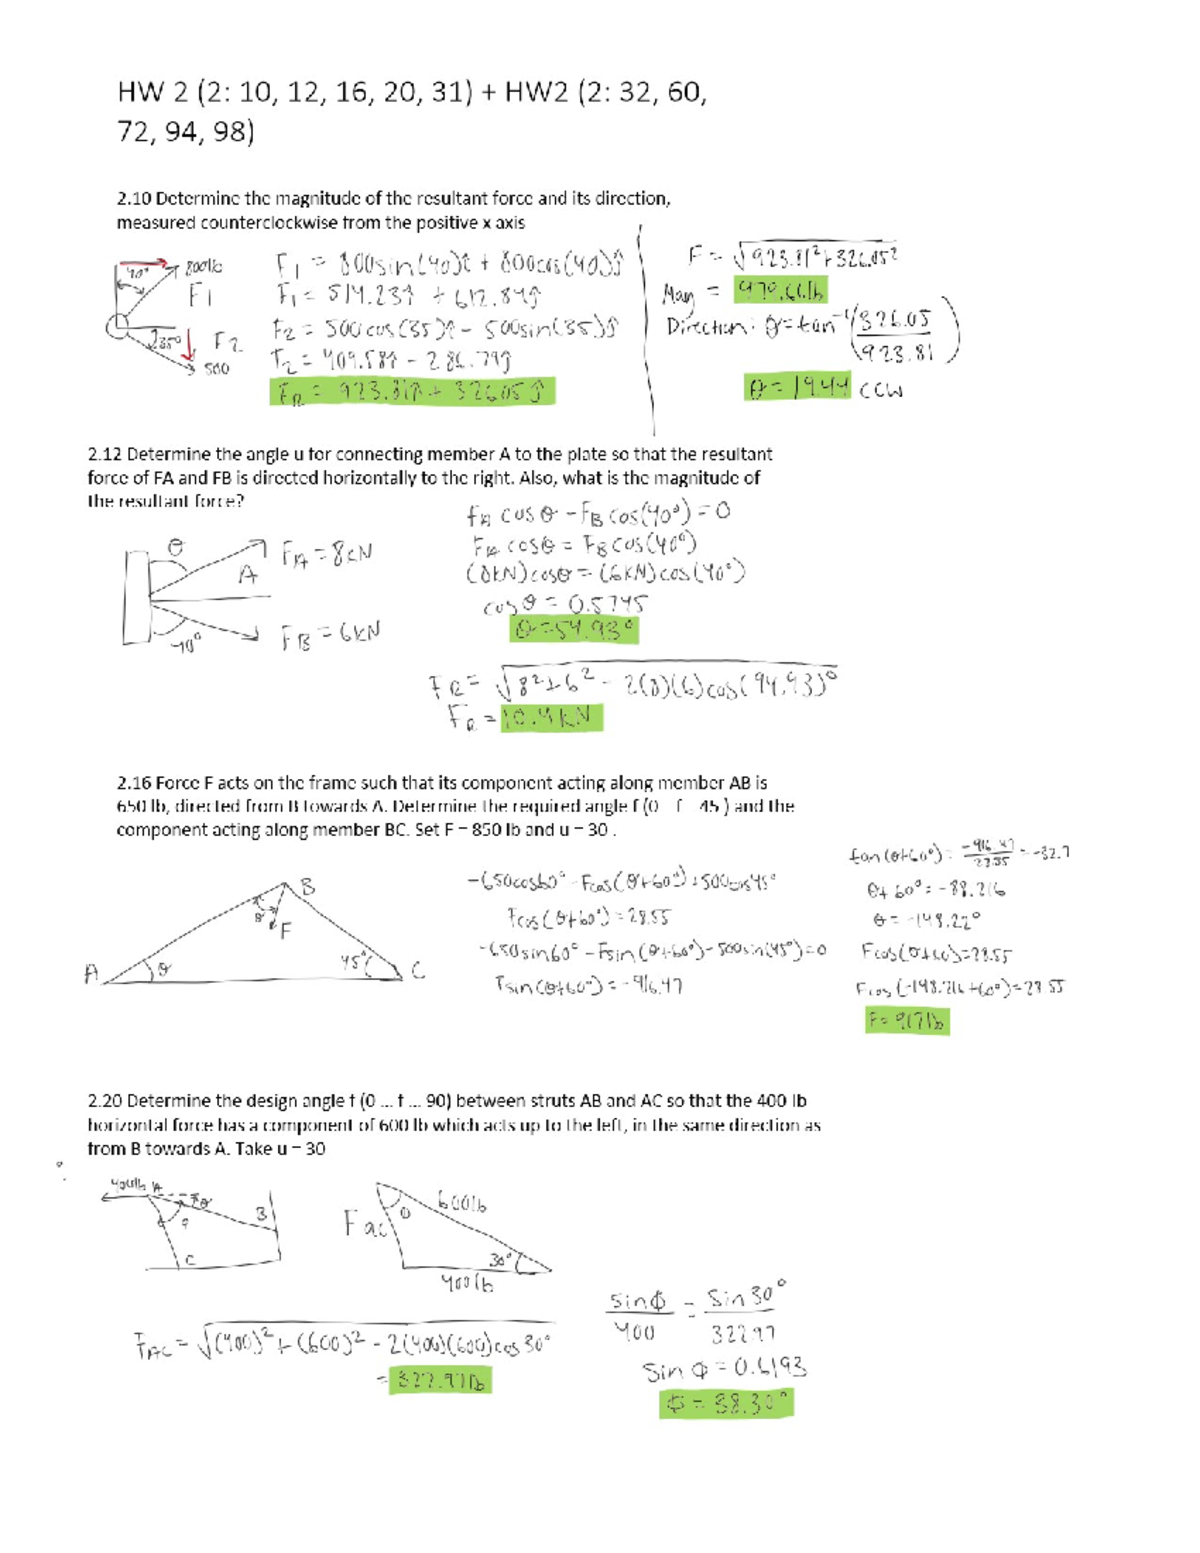 HW 2 (2: 10, 12, 16, 20, 31) + HW2 (2: 32, 60,
72, 94, 98)
2.10 Determine the magnitude of the resultant force and its direction,
measured counterclockwise from the positive x axis
40° 800lb
F1
35° F2
500
F1 = 800sin(40)î + 800cos(40)ĵ
F1 = 514.23î + 612.84ĵ
F2 = 500cos(35)î - 500sin(35)ĵ
F2 = 409.58î - 286.79ĵ
FR = 923.81î + 326.05ĵ
F = √923.81²+326.05²
Mag = 979.66lb
Direction: θ=tan⁻¹(326.05/923.81)
θ = 19.44 CCW
2.12 Determine the angle u for connecting member A to the plate so that the resultant
force of FA and FB is directed horizontally to the right. Also, what is the magnitude of
the resultant force?
θ FA = 8kN
A
40° FB = 6kN
FA cosθ - FB cos(40°) = 0
FA cosθ = FB cos(40°)
(8kN)cosθ = (6kN)cos(40°)
cosθ = 0.5745
θ = 54.93°
FR = √8²+6² - 2(8)(6)cos(94.93)°
FR = 10.4kN
2.16 Force F acts on the frame such that its component acting along member AB is
650 lb, directed from B towards A. Determine the required angle f (0 f 45 ) and the
component acting along member BC. Set F = 850 lb and u = 30 .
B
θ F
A θ 45° C
-650cos60° - Fcos(θ+60°)+500cos45°
Fcos(θ+60°)=28.55
-650sin60° - Fsin(θ+60°)-500sin(45°)=0
Fsin(θ+60°)=-916.47
tan(θ+60°)= -916.47/28.55 = -32.1
θ+60°= -88.216
θ = -148.22°
Fcos(θ+60)=28.55
Fcos(-148.216+60°)=28.55
F= 917lb
2.20 Determine the design angle f (0 ... f ... 90) between struts AB and AC so that the 400 lb
horizontal force has a component of 600 lb which acts up to the left, in the same direction as
from B towards A. Take u = 30
400lb A θ
B
C
Fac 600lb
30°
400lb
FAC = √(400)²+(600)² - 2(400)(600)cos30°
= 322.97lb
sinφ/400 = sin30°/322.97
sinφ = 0.6193
φ = 38.30°